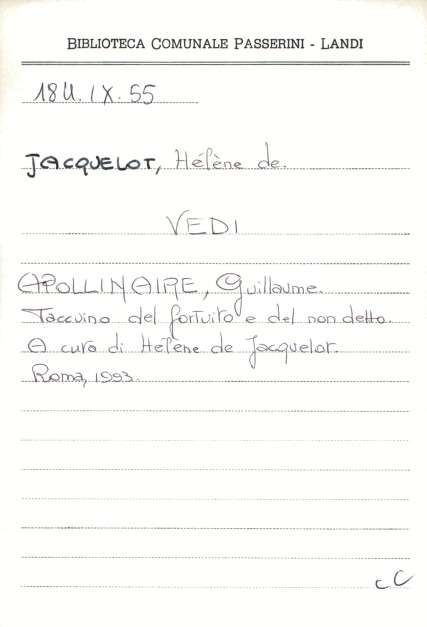 BIBLIOTECA COMUNALE PASSERINI - LANDI
18U.IX.55
JACQUELOT, Hélène de.
VEDI
APOLLINAIRE, Guillaume.
Taccuino del fortuito e del non detto.
A cura di Hélène de Jacquelot.
Roma, 1993.
cC